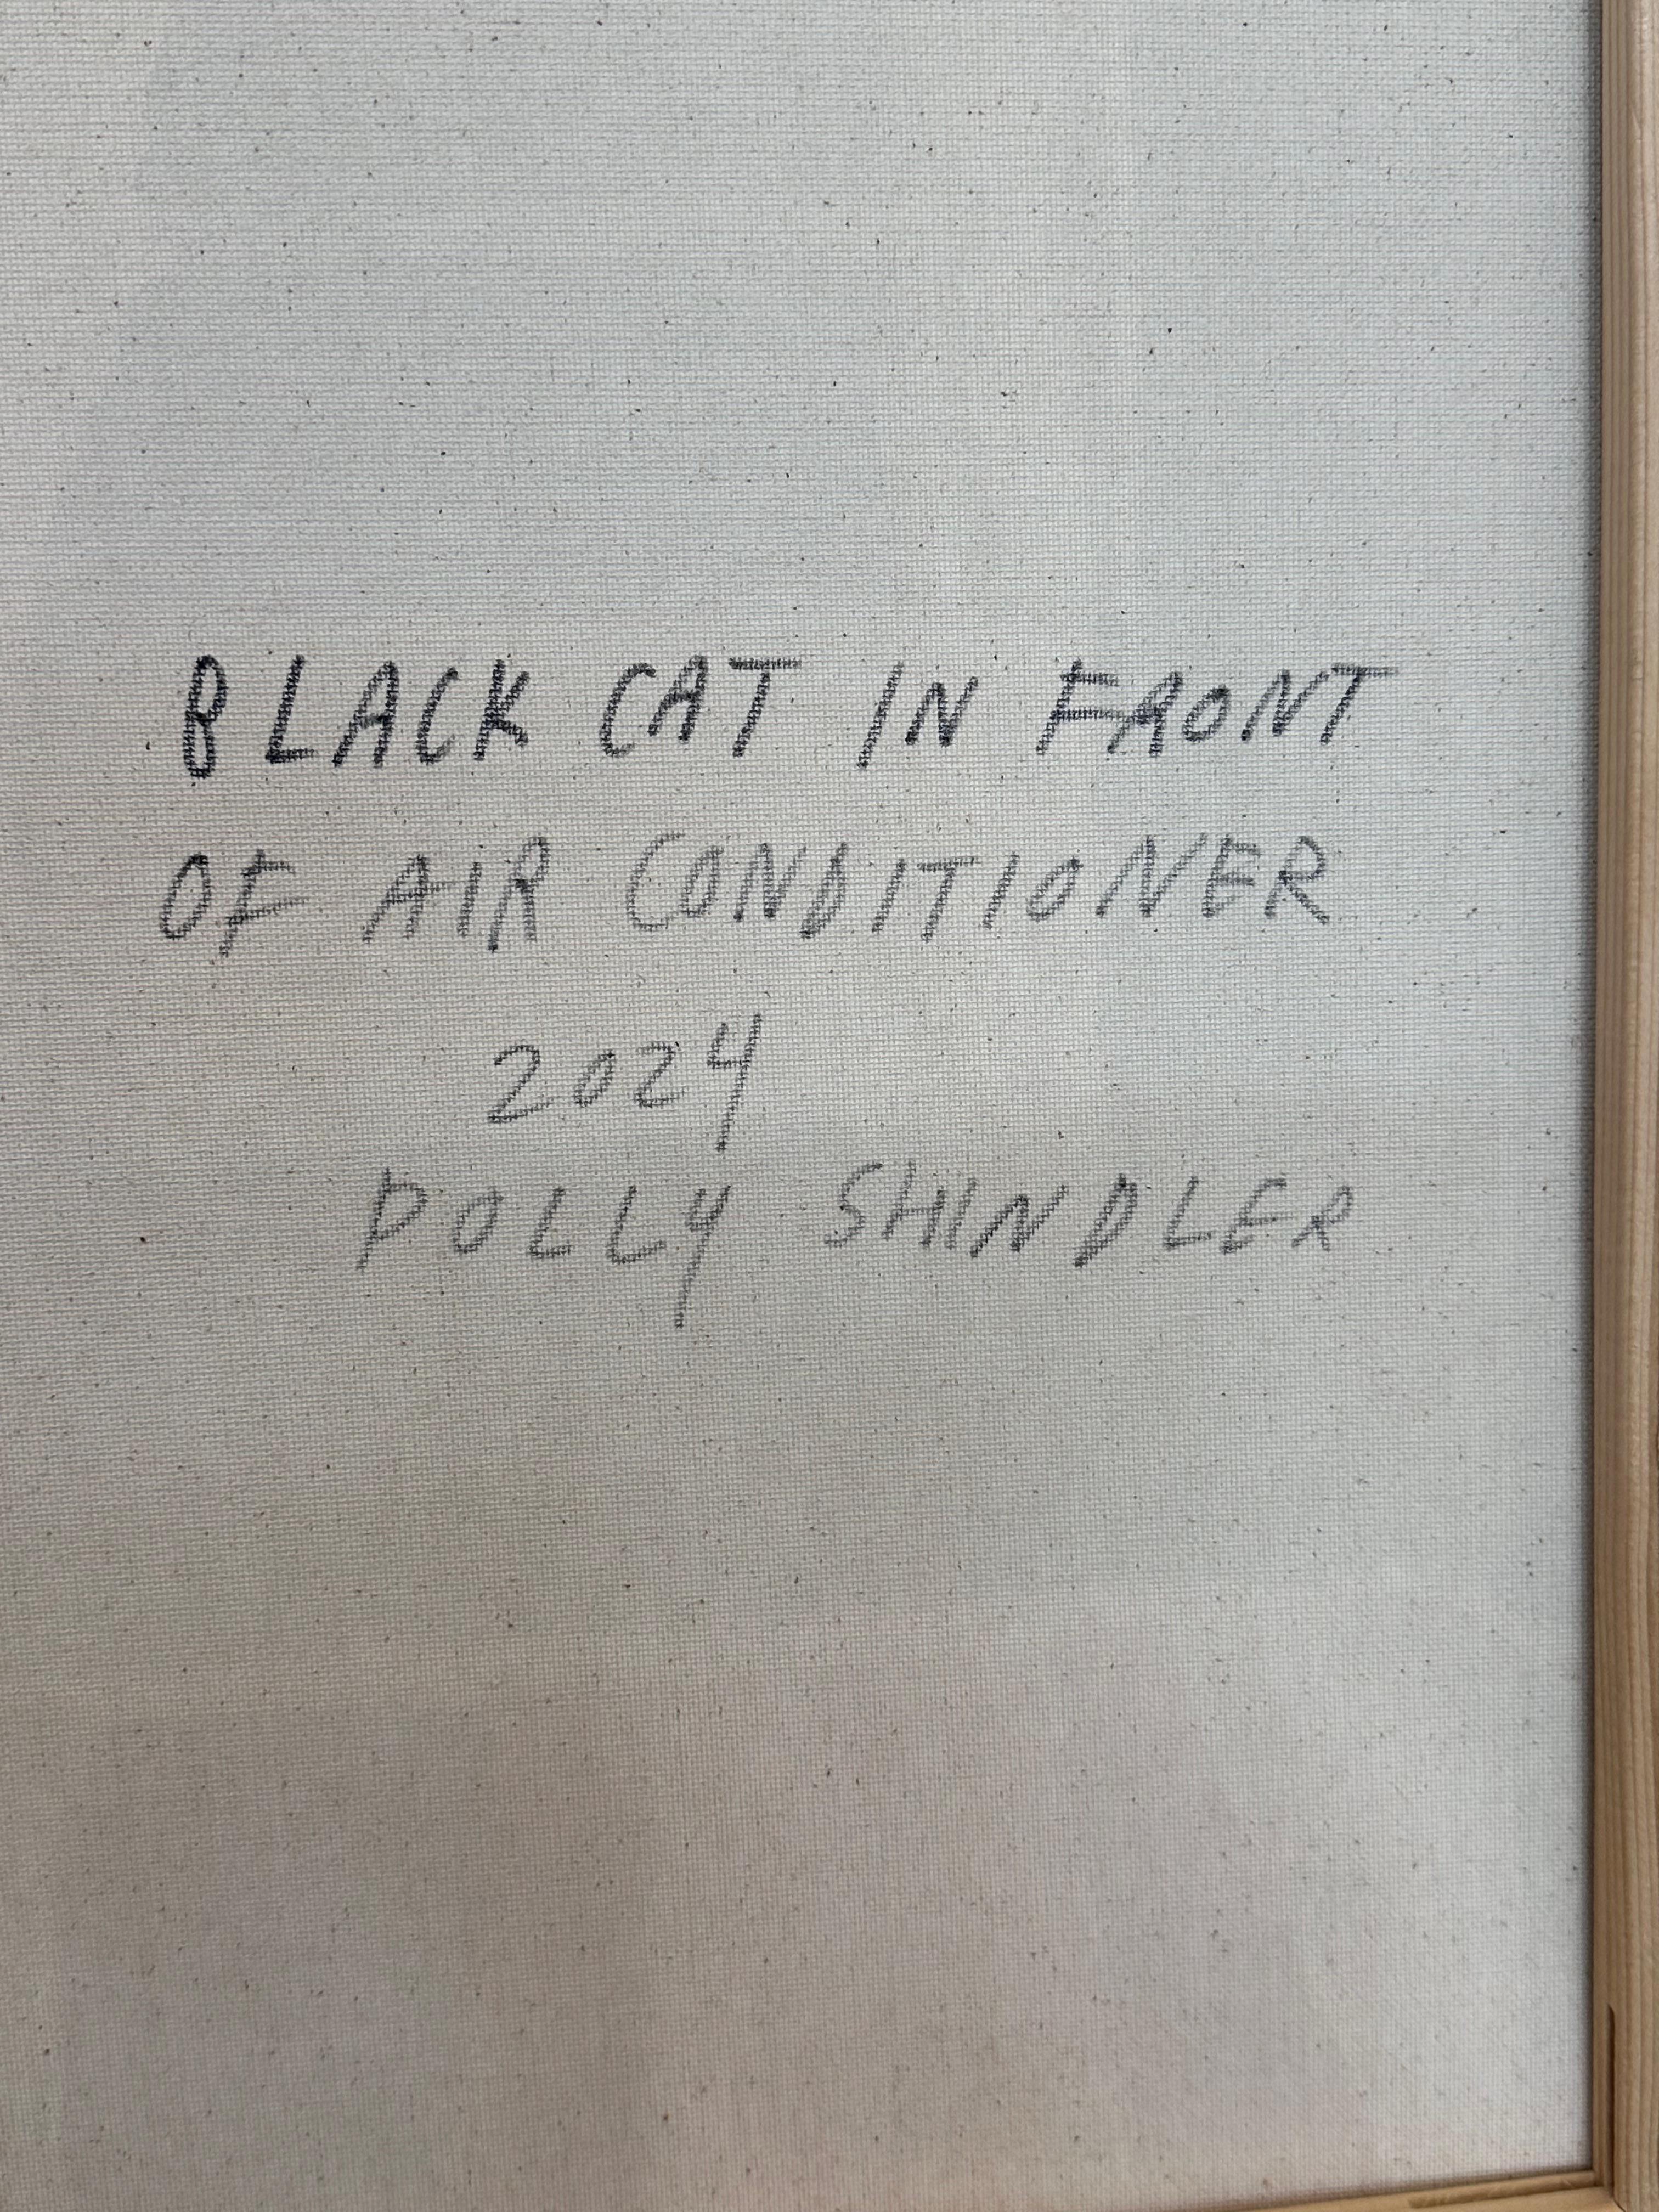 BLACK CAT IN FRONT
OF AIR CONDITIONER
2024
POLLY SHINDLER